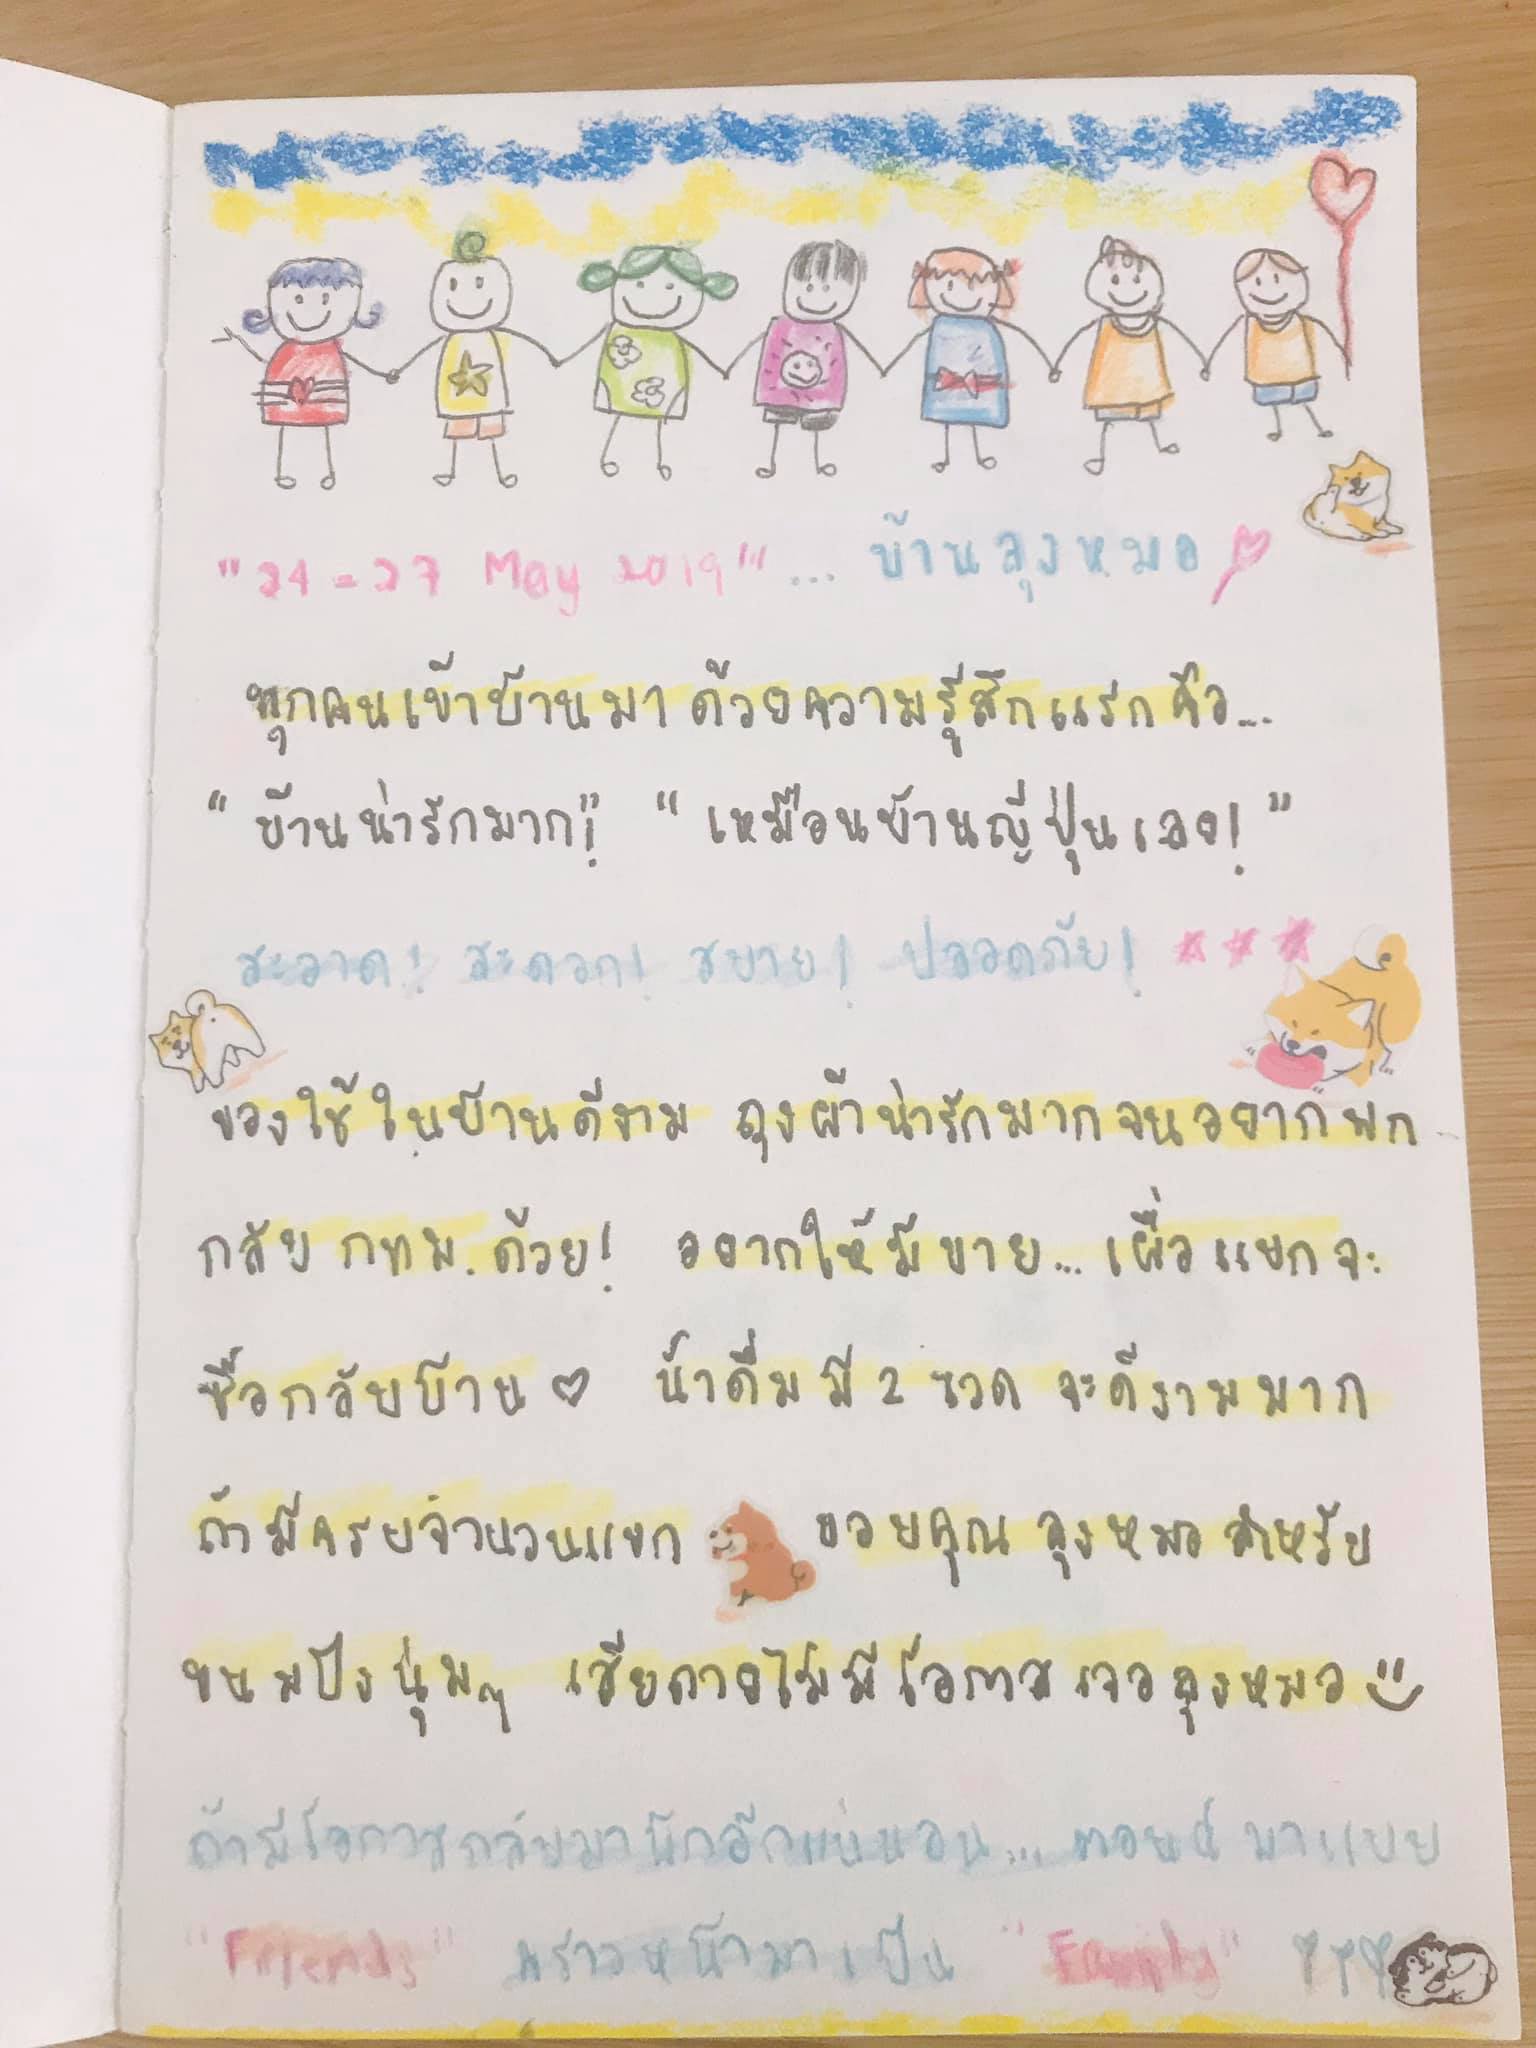 "24-27 May 2019" ... บ้านลุงหมอ
ทุกคนเข้าบ้านมาด้วยความรู้สึกแรกคือ...
"บ้านน่ารักมาก!" "เหมือนบ้านญี่ปุ่นเลย!"
สะอาด! สะดวก! สบาย! ปลอดภัย!
ของใช้ในบ้านดีงาม ถุงผ้าน่ารักมากจนอยากพก
กลับ กทม. ด้วย! อยากให้มีขาย... เผื่อแขกจะ
ซื้อกลับบ้าน ♡ น้ำดื่มมี 2 ขวด จะดีงามมาก
ถ้ามีครบจำนวนแขก ขอบคุณลุงหมอสำหรับ
ขนมปังนุ่มๆ เสียดายไม่มีโอกาสเจอลุงหมอ
ถ้ามีโอกาสกลับมาพักอีกแน่นอน... ตอนนี้มาแบบ
"Friends" คราวหน้ามาเป็น "Family"